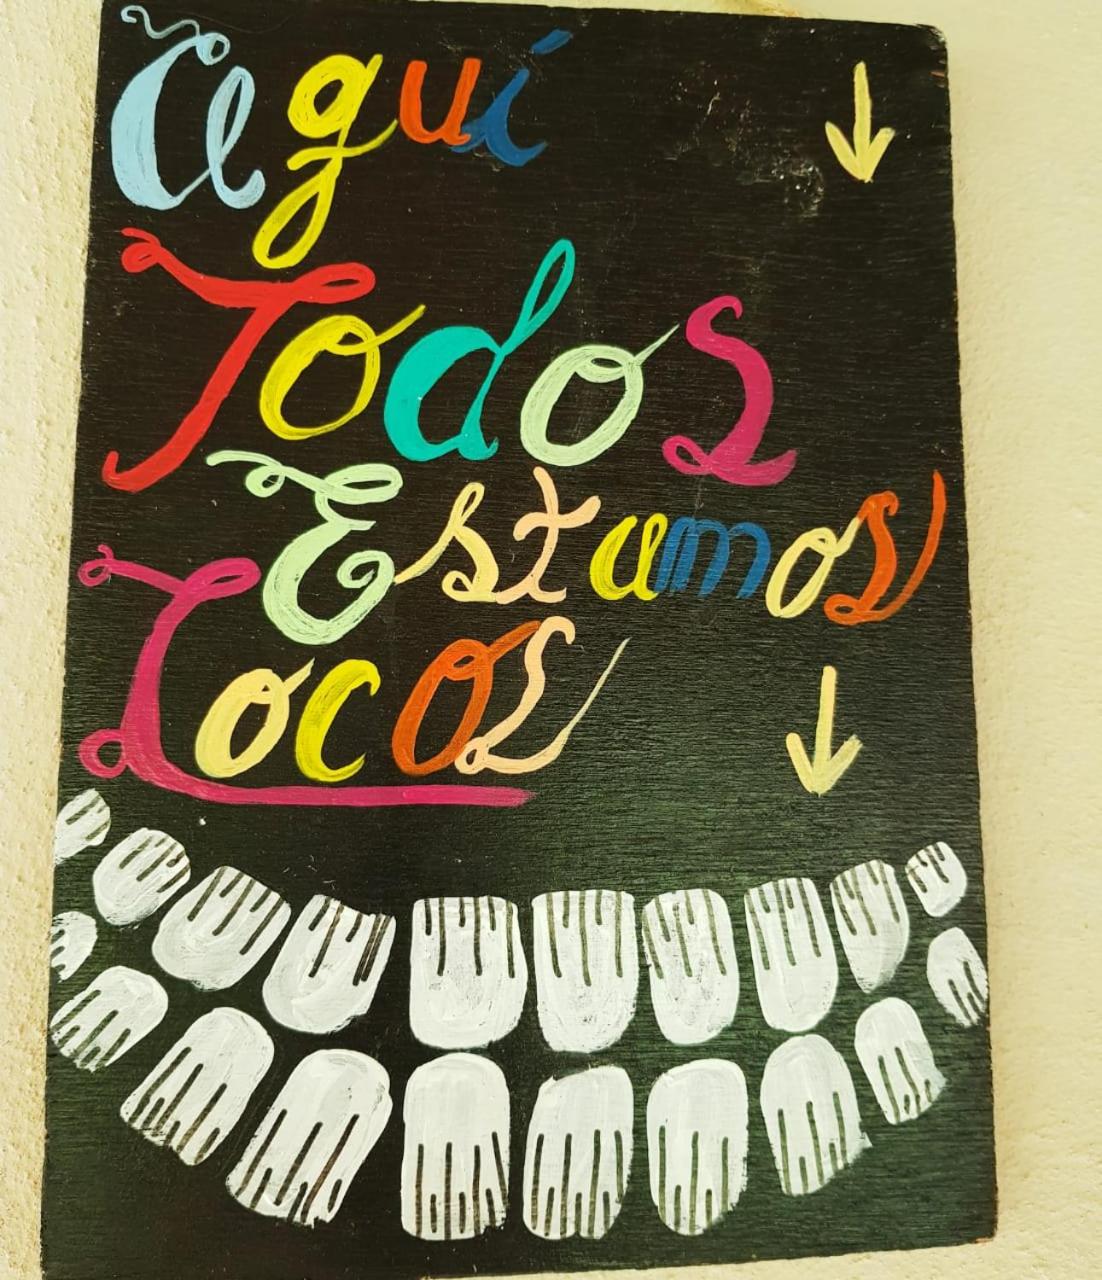 Aquí
Todos
Estamos
Locos